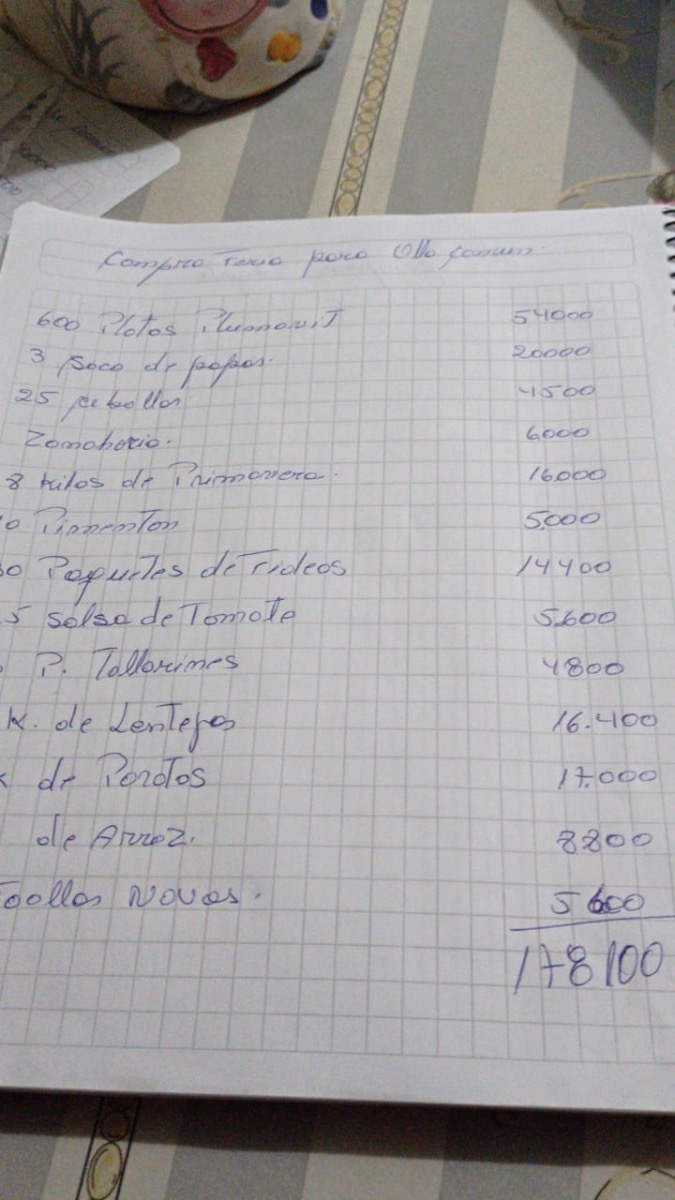 Compra Feria para Olla Comun.
600 Platos Plumavit 54000
3 Saco de papas. 20000
25 Cebollas 4500
Zanahoria. 6000
8 Kilos de Primavera. 16000
0 Pimenton 5000
0 Paquetes de Fideos 14400
5 Salsa de Tomate 5600
P. Tallarines 4800
K. de Lentejas 16.400
de Porotos 17.000
de Arroz. 8800
Toallas Novas. 5600
178100